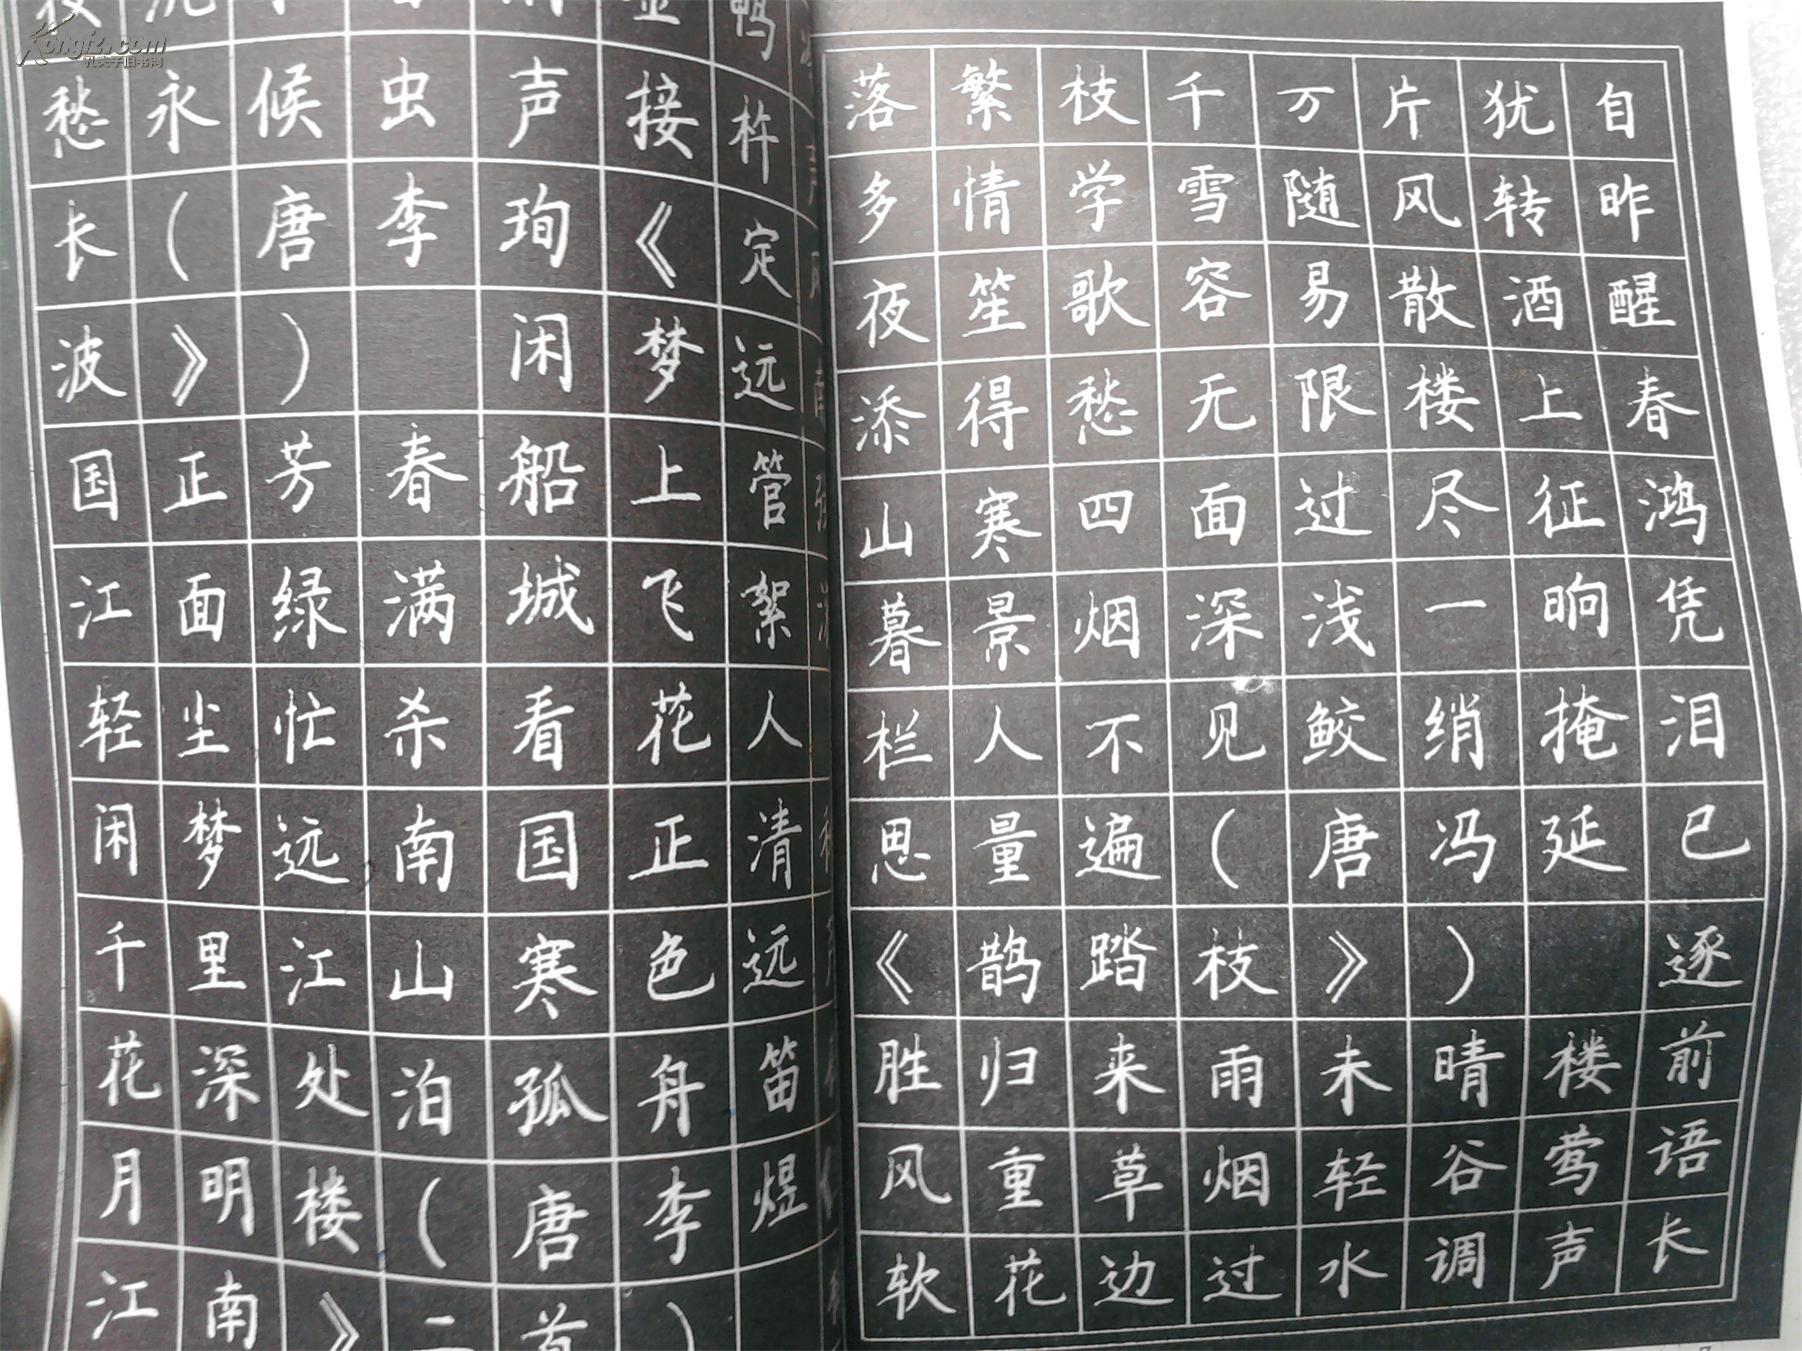 愁永候虫声接杵
长（唐李珣《定
波》） 闲梦远
国正芳春船上管
江面绿满城飞絮
轻尘忙杀看花人
闲梦远南国正清
千里江山寒色远
花深处泊孤舟笛
月明楼（唐李煜《
江南》二首）
落繁枝千万片犹自
多情学雪随风转昨
夜笙歌容易散酒醒
添得愁无限楼上春
山寒四面过尽征鸿
暮景烟深浅一晌凭
栏人不见鲛绡掩泪
思量遍（唐冯延巳
《鹊踏枝》） 逐
胜归来雨未晴楼前
风重草烟轻谷莺语
软花边过水调声长
Kongfz.com
孔夫子旧书网